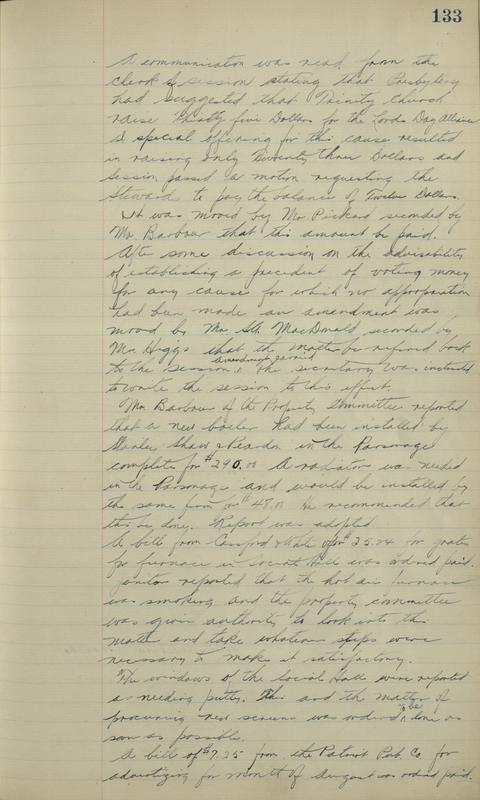 133
A communication was read from the
Clerk of Session stating that Presbytery
had suggested that Trinity Church
raise Thirty five Dollars for the Lords Day Alliance
A special offering for this cause resulted
in raising only Twenty three Dollars and
Session passed a motion requesting the
Steward to pay the balance of Twelve Dollars.
It was moved by Mr. Pickard seconded by
Mr. Barbour that this amount be paid.
After some discussion on the advisability
of establishing a precedent of voting money
for any cause for which no appropriation
had been made an amendment was
moved by Mr. MacDonald seconded by
Mr. Higgs that the matter be refered back
to the Session. amendment carried The secretary was instructed
to write the session to this effect.
Mr. Barbour of the Property Committee reported
that a new boiler had been installed by
Shaw & Peardon in the Parsonage
complete for $290.00 A radiator was needed
in the Parsonage and would be installed by
the same firm for $48.00 He recommended that
this be done. Report was adopted.
A bill from & White of $25.24 for grates
for furnace in Social Hall was ordered paid.
Janitor reported that the hot air furnace
was smoking and the property committee
was given authority to look into the
matter and take whatever steps were
necessary to make it satisfactory.
The windows of the Social Hall were reported
as needing putty. This and the matter of
procuring new screens was ordered to be done as
soon as possible.
A bill of $7.25 from the Patriot Pub. Co. for
advertizing for month of August was ordered paid.